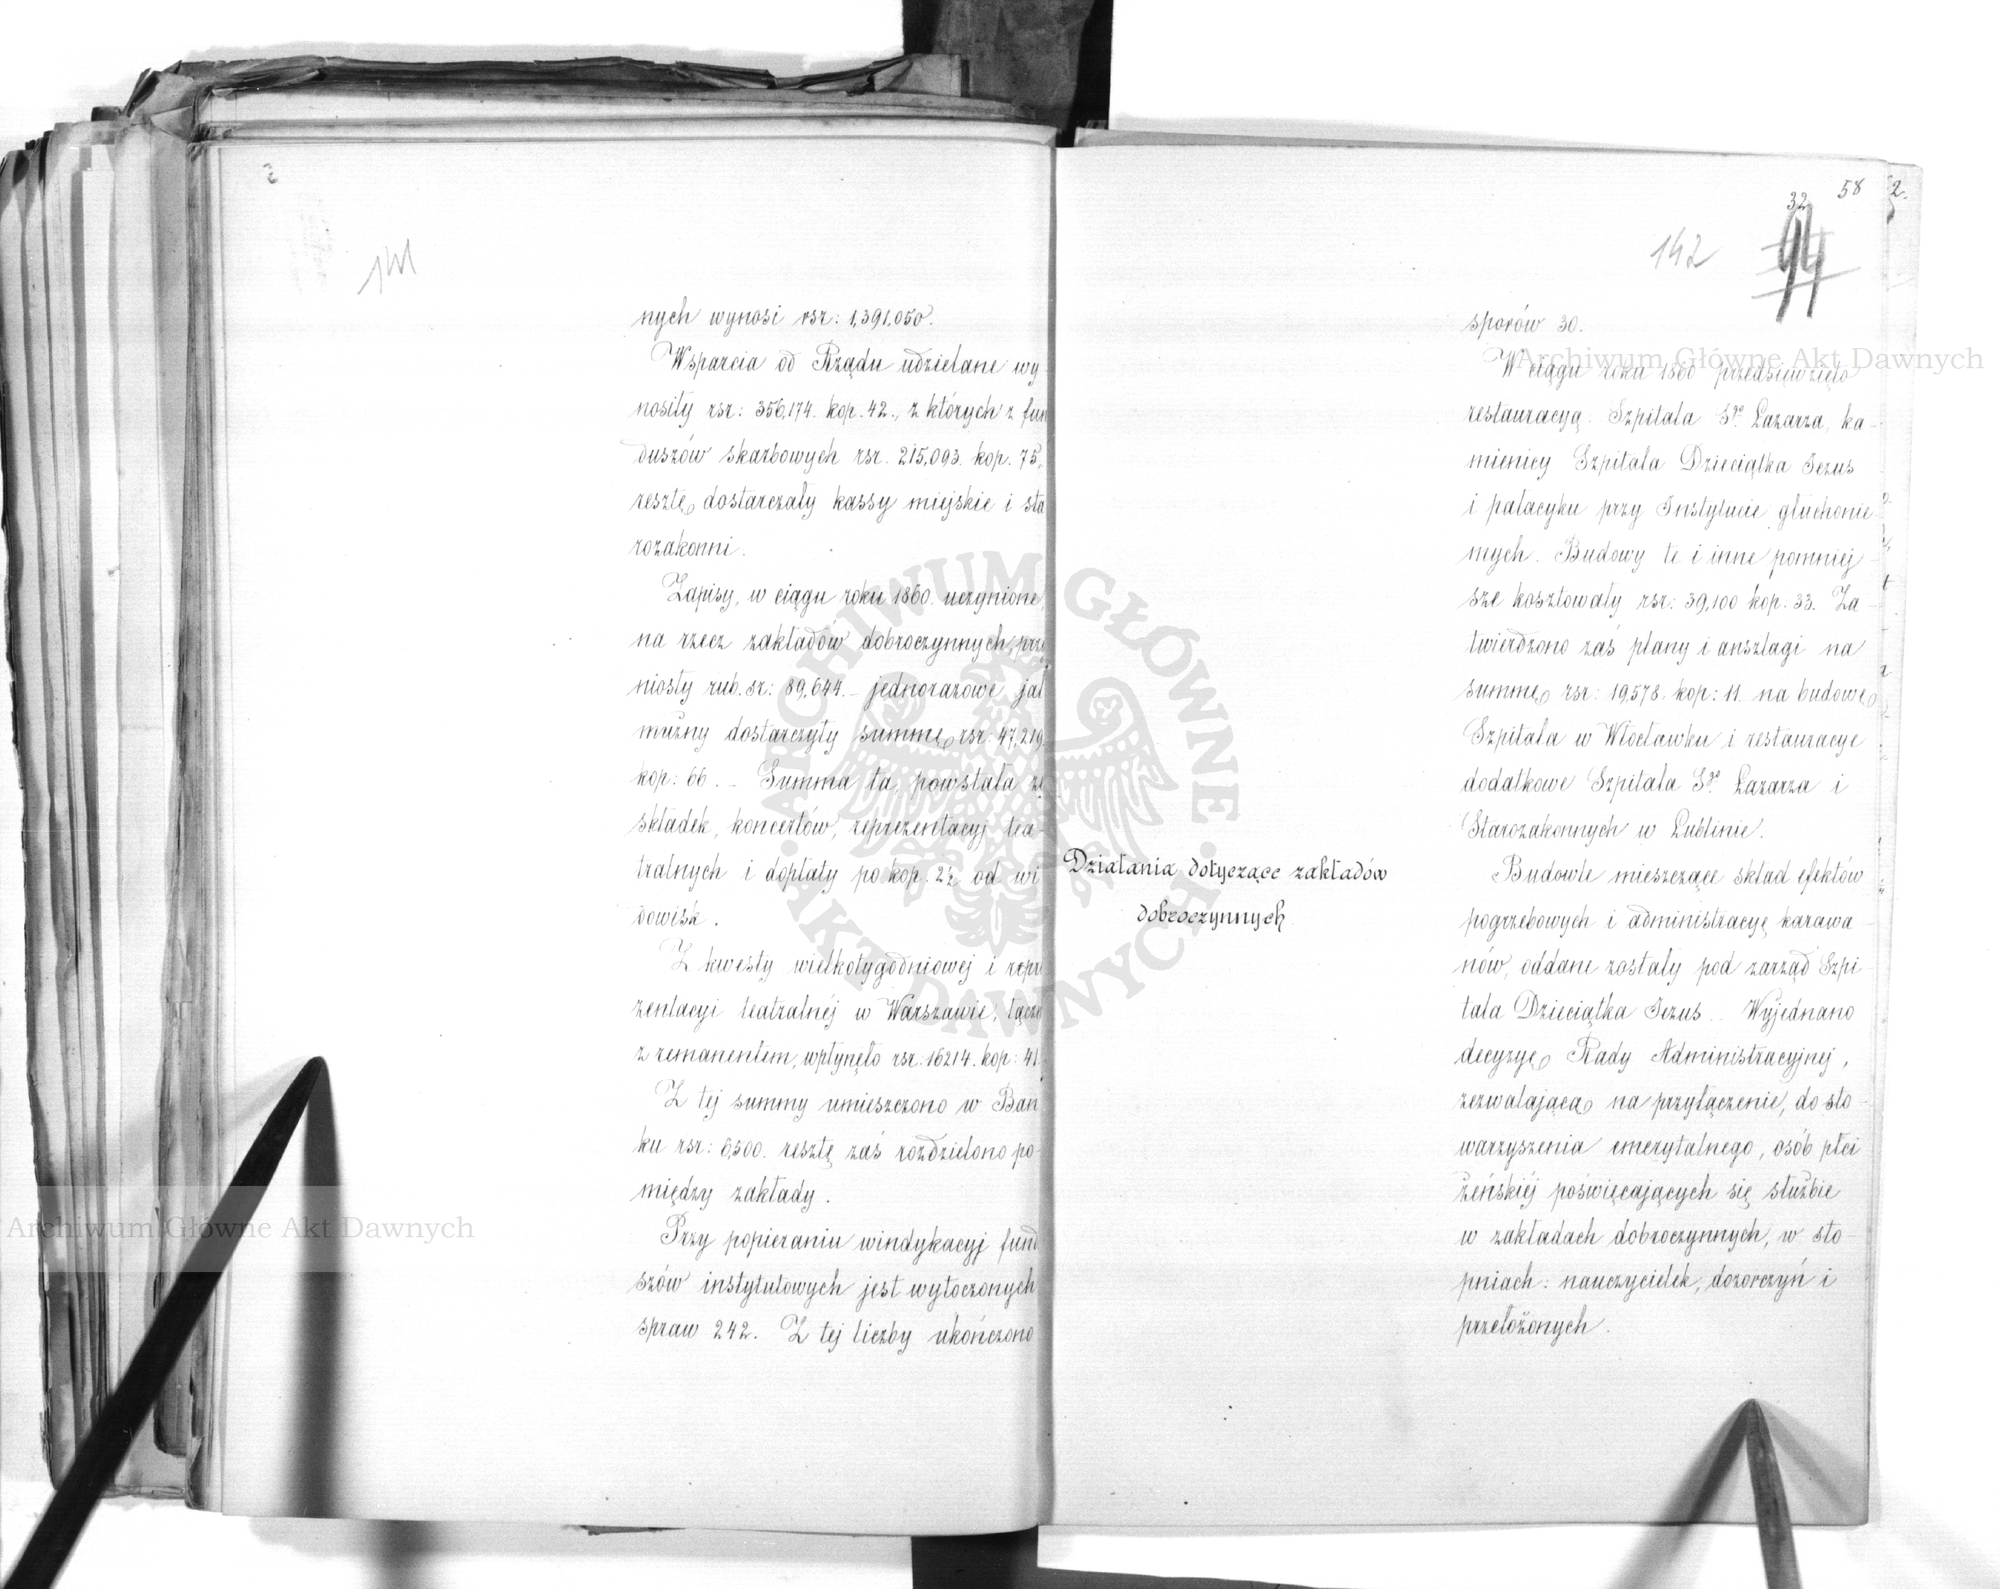 141
nych wynosi rsr: 1,391,050.
Wsparcia od Rządu udzielane wy
nosiły rsr: 356,174. kop. 42., z których z fun
duszów skarbowych rsr. 215,093. kop. 75,
resztę dostarczały kassy miejskie i sta
rozakonni.
Zapisy, w ciągu roku 1860. uczynione,
na rzecz zakładów dobroczynnych, przy
niosły rub. sr: 89,644. – jednorazowe jał
mużny dostarczyły summę rsr: 47,219.
kop: 66. – Summa ta, powstała ze
składek, koncertów, reprezentacyj tea-
tralnych i dopłaty po kop. 2½ od wi
dowisk.
Z kwesty wielkotygodniowej i repre
zentacyi teatralnéj w Warszawie, łączn
z remanentem, wpłynęło rsr: 16214. kop: 41.
Z tej summy umieszczono w Ban
ku rsr: 6,500. resztę zaś rozdzielono po
między zakłady.
Przy popieraniu windykacyj fund
szów instytutowych jest wytoczonych
spraw 242. Z tej liczby ukończono
58
32
142
94
2.
sporów 30.
W ciągu roku 1860 przedsięwzięto
restauracyą: Szpitala Sgo Łazarza, ka-
mienicy Szpitala Dzieciątka Jezus
i pałacyku przy Instytucie głuchonie-
mych. Budowy te i inne pomniej
sze kosztowały rsr: 39,100 kop: 33. Za-
twierdzono zaś plany i anszlagi na
summę rsr: 19,578. kop: 11. na budowę
Szpitala w Włocławku i restauracye
dodatkowe Szpitala Sgo Łazarza i
Starozakonnych w Lublinie.
Działania dotyczące zakładów
dobroczynnych.
Budowle mieszczące skład efektów
pogrzebowych i administracyę karawa-
nów, oddane zostały pod zarząd Szpi-
tala Dzieciątka Jezus. – Wyjednano
decyzyę Rady Administracyjnej,
zezwalającą na przyłączenie, do sto-
warzyszenia emerytalnego, osób płci
żeńskiéj poświęcających się służbie
w zakładach dobroczynnych, w sto-
pniach: nauczycielek, dozorczyń i
przełożonych.
Archiwum Główne Akt Dawnych
Archiwum Główne Akt Dawnych
ARCHIWUM GŁÓWNE
AKT DAWNYCH